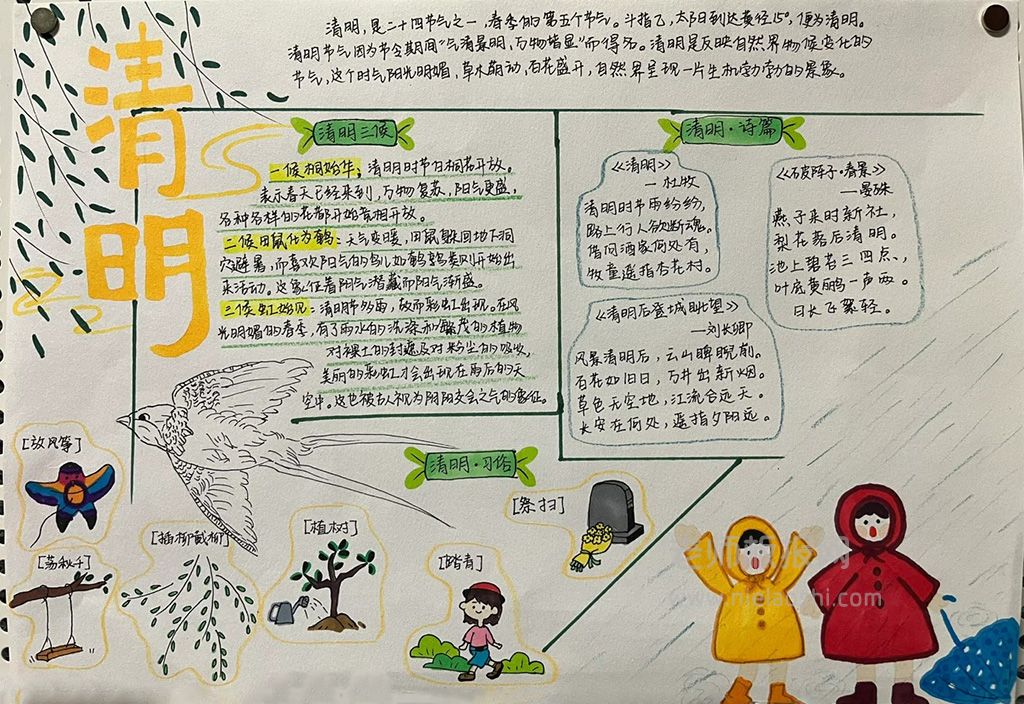 清明
清明，是二十四节气之一，春季的第五个节气。斗指乙，太阳到达黄经15°，便为清明。
清明节气因为节令期间"气清景明，万物皆显"而得名。清明是反映自然界物候变化的
节气，这个时气阳光明媚，草木萌动，百花盛开，自然界呈现一片生机勃勃的景象。
清明三候
一候桐始华：清明时节白桐花开放。
表示春天已经来到，万物复苏，阳气更盛，
各种各样的花都开始竞相开放。
二候田鼠化为鹌：天气变暖，田鼠躲回地下洞
穴避暑，而喜欢阳气的鸟儿如鹌鹑类则开始出
来活动。这象征着阴气潜藏而阳气渐盛。
三候虹始见：清明节多雨，故而彩虹出现。在风
光明媚的春季，有了雨水的洗涤和繁茂的植物
对裸土的封遮及对粉尘的吸收，
美丽的彩虹才会出现在雨后的天
空中。这也被古人视为阴阳交会之气的象征。
清明·诗篇
《清明》
一杜牧
清明时节雨纷纷，
路上行人欲断魂。
借问酒家何处有，
牧童遥指杏花村。
《破阵子·春景》
—晏殊
燕子来时新社，
梨花落后清明。
池上碧苔三四点，
叶底黄鹂一声两。
日长飞絮轻。
《清明后登城眺望》
—刘长卿
风景清明后，云山睥睨前。
百花如旧日，万井出新烟。
草色无空地，江流合远天。
长安在何处，遥指夕阳远。
清明·习俗
[放风筝]
[荡秋千]
[插柳戴柳]
[植树]
[踏青]
[祭扫]